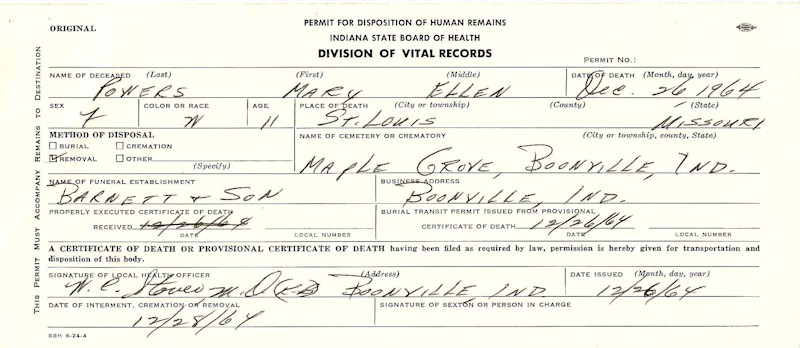 ORIGINAL
PERMIT FOR DISPOSITION OF HUMAN REMAINS
INDIANA STATE BOARD OF HEALTH
DIVISION OF VITAL RECORDS
PERMIT NO.:
THIS PERMIT MUST ACCOMPANY REMAINS TO DESTINATION
NAME OF DECEASED (Last) (First) (Middle) DATE OF DEATH (Month, day, year)
POWERS MARY ELLEN Dec. 26 1964
SEX COLOR OR RACE AGE PLACE OF DEATH (City or township) (County) (State)
F W 11 ST. LOUIS MISSOURI
METHOD OF DISPOSAL NAME OF CEMETERY OR CREMATORY (City or township, county, State)
BURIAL CREMATION
REMOVAL OTHER
(Specify)
MAPLE GROVE, BOONVILLE, IND.
NAME OF FUNERAL ESTABLISHMENT BUSINESS ADDRESS
BARNETT & SON BOONVILLE, IND.
PROPERLY EXECUTED CERTIFICATE OF DEATH BURIAL TRANSIT PERMIT ISSUED FROM PROVISIONAL
RECEIVED 12/26/64 CERTIFICATE OF DEATH 12/26/64
DATE LOCAL NUMBER DATE LOCAL NUMBER
A CERTIFICATE OF DEATH OR PROVISIONAL CERTIFICATE OF DEATH having been filed as required by law, permission is hereby given for transportation and
disposition of this body.
SIGNATURE OF LOCAL HEALTH OFFICER (Address) DATE ISSUED (Month, day, year)
W. C. Stover M.D. BOONVILLE, IND. 12/26/64
DATE OF INTERMENT, CREMATION OR REMOVAL SIGNATURE OF SEXTON OR PERSON IN CHARGE
12/28/64
SBH 6-24-4